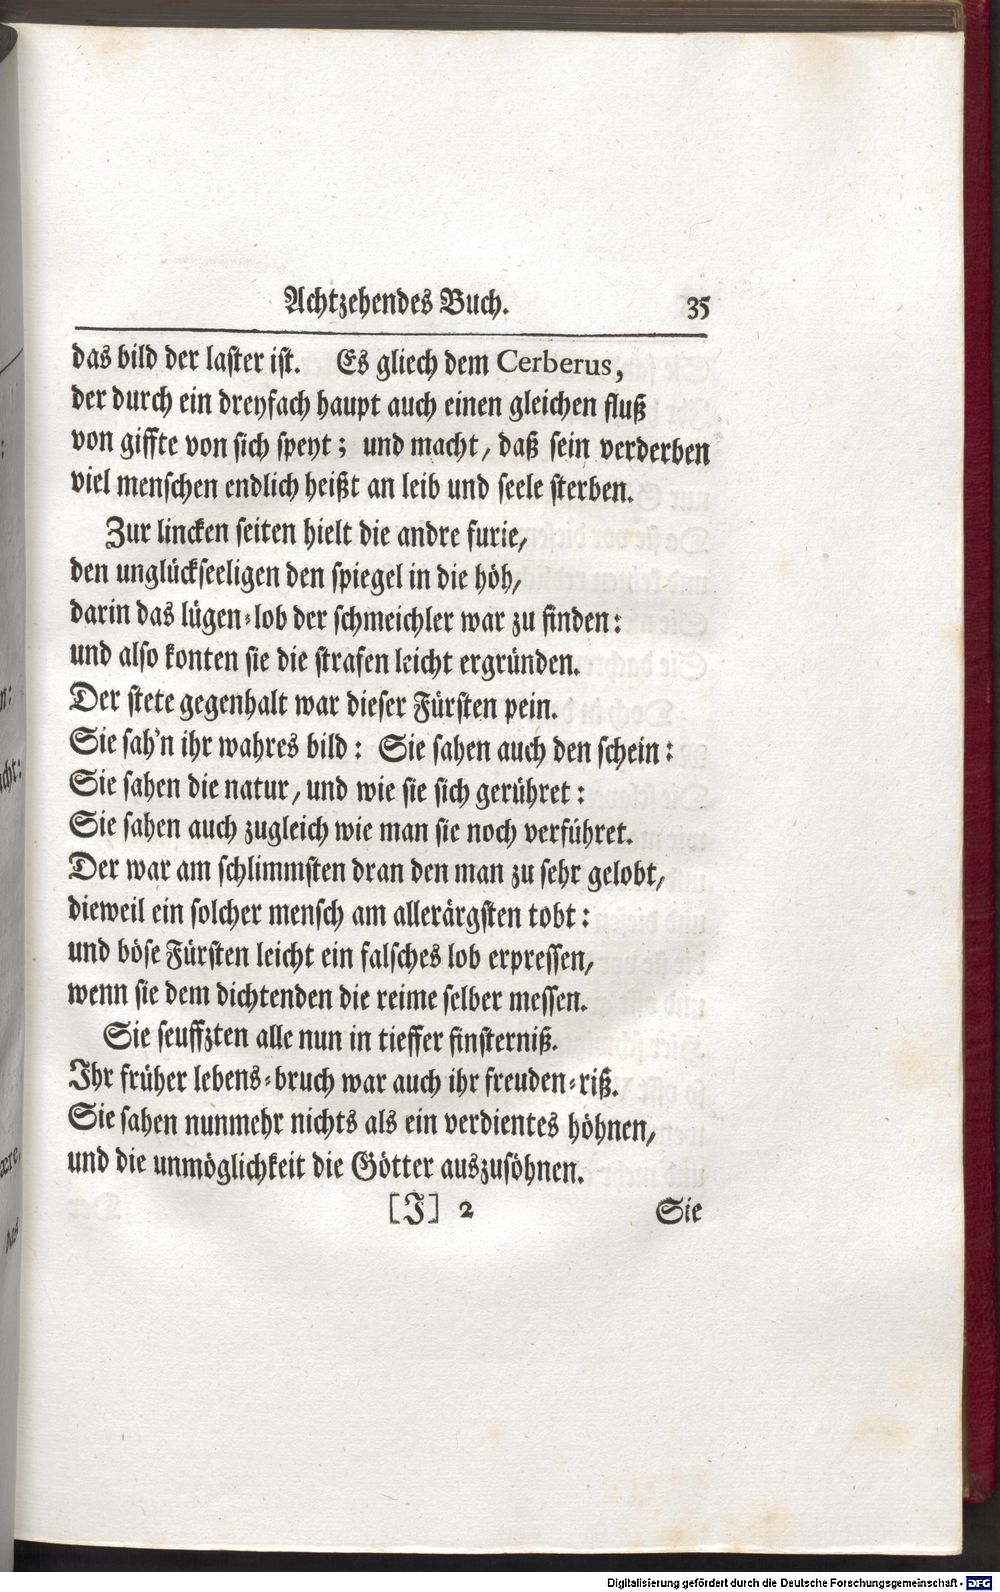 Achtzehendes Buch. 35
das bild der laster ist. Es gliech dem Cerberus,
der durch ein dreyfach haupt auch einen gleichen fluß
von giffte von sich speyt; und macht, daß sein verderben
viel menschen endlich heißt an leib und seele sterben.
Zur lincken seiten hielt die andre furie,
den unglückseeligen den spiegel in die höh,
darin das lügen-lob der schmeichler war zu finden:
und also konten sie die strafen leicht ergründen.
Der stete gegenhalt war dieser Fürsten pein.
Sie sah'n ihr wahres bild: Sie sahen auch den schein:
Sie sahen die natur, und wie sie sich gerühret:
Sie sahen auch zugleich wie man sie noch verführet.
Der war am schlimmsten dran den man zu sehr gelobt,
dieweil ein solcher mensch am allerärgsten tobt:
und böse Fürsten leicht ein falsches lob erpressen,
wenn sie dem dichtenden die reime selber messen.
Sie seuffzten alle nun in tieffer finsterniß.
Ihr früher lebens-bruch war auch ihr freuden-riß.
Sie sahen nunmehr nichts als ein verdientes höhnen,
und die unmöglichkeit die Götter auszusöhnen.
[J] 2 Sie
Digitalisierung gefördert durch die Deutsche Forschungsgemeinschaft - DFG